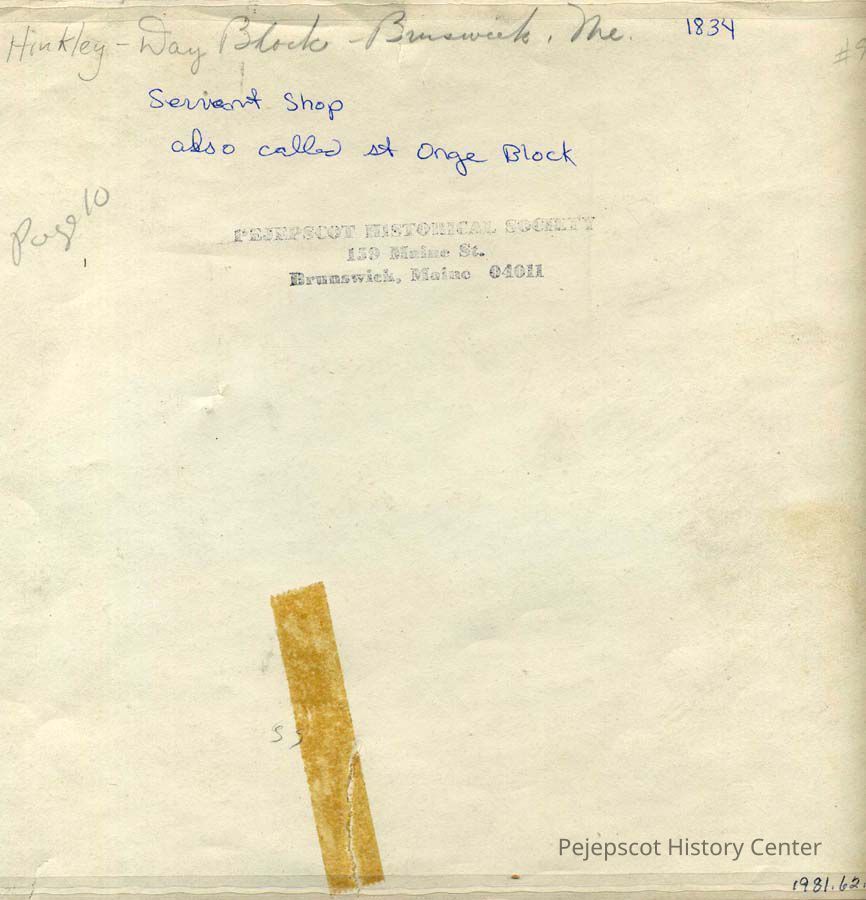 Hinkley - Day Block - Brunswick, Me. 1834
Servant Shop
also called st Onge Block
Page 10
PEJEPSCOT HISTORICAL SOCIETY
159 Maine St.
Brunswick, Maine 04011
Pejepscot History Center
1981.62.